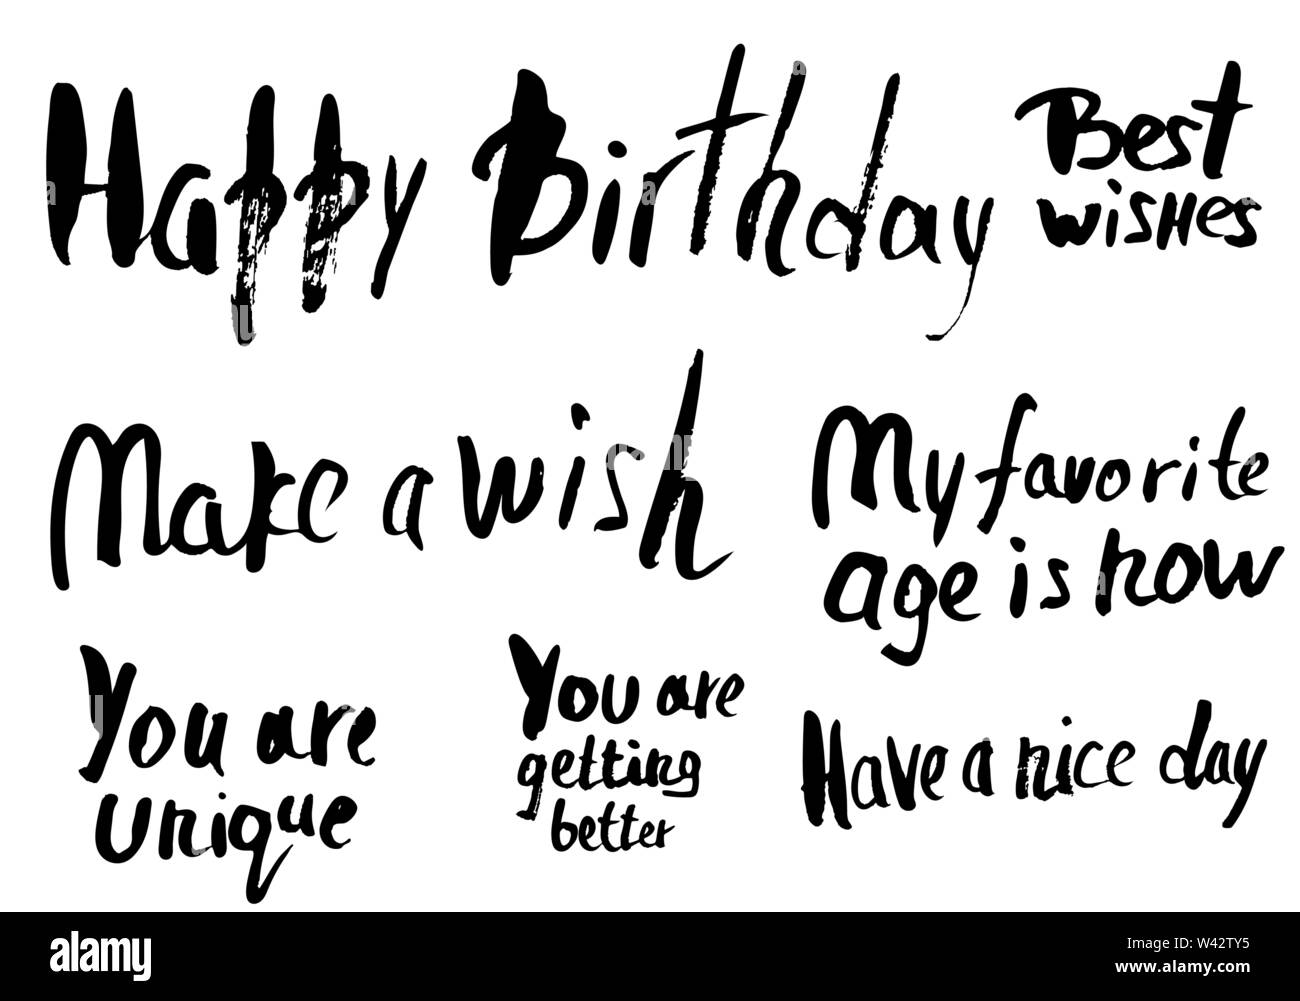 Happy Birthday
Best
wishes
Make a wish
My favorite
age is now
You are
unique
You are
getting
better
Have a nice day
alamy
Image ID: W42TY5
www.alamy.com